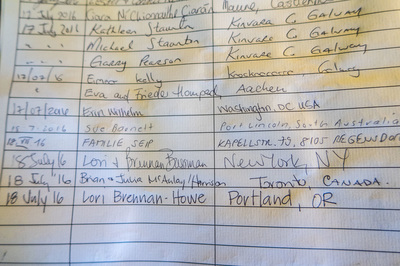 July 2016 Ciara Ciarán Maume, Castle
17 July 2016 Kathleen Staunton Kinvara Co Galway
" " " Michael Staunton Kinvara Co Galway
" " " Gerry Kinvara Co Galway
17/07/16 Emma Kelly Galway
" Eva and Frieder Aachen
17/07/2016 Erin Wilhelm Washington, DC USA
18.7.2016 Sue Barnett Port Lincoln, South Australia
16 FAMILIE SEIP KAPELLSTR. 8105 REGENSDORF
18 July '16 Lori & Brennan New York, NY
18 July '16 Brian & Julia McAulay/Harrison Toronto, CANADA.
18 July '16 Lori Brennan-Howe Portland, OR